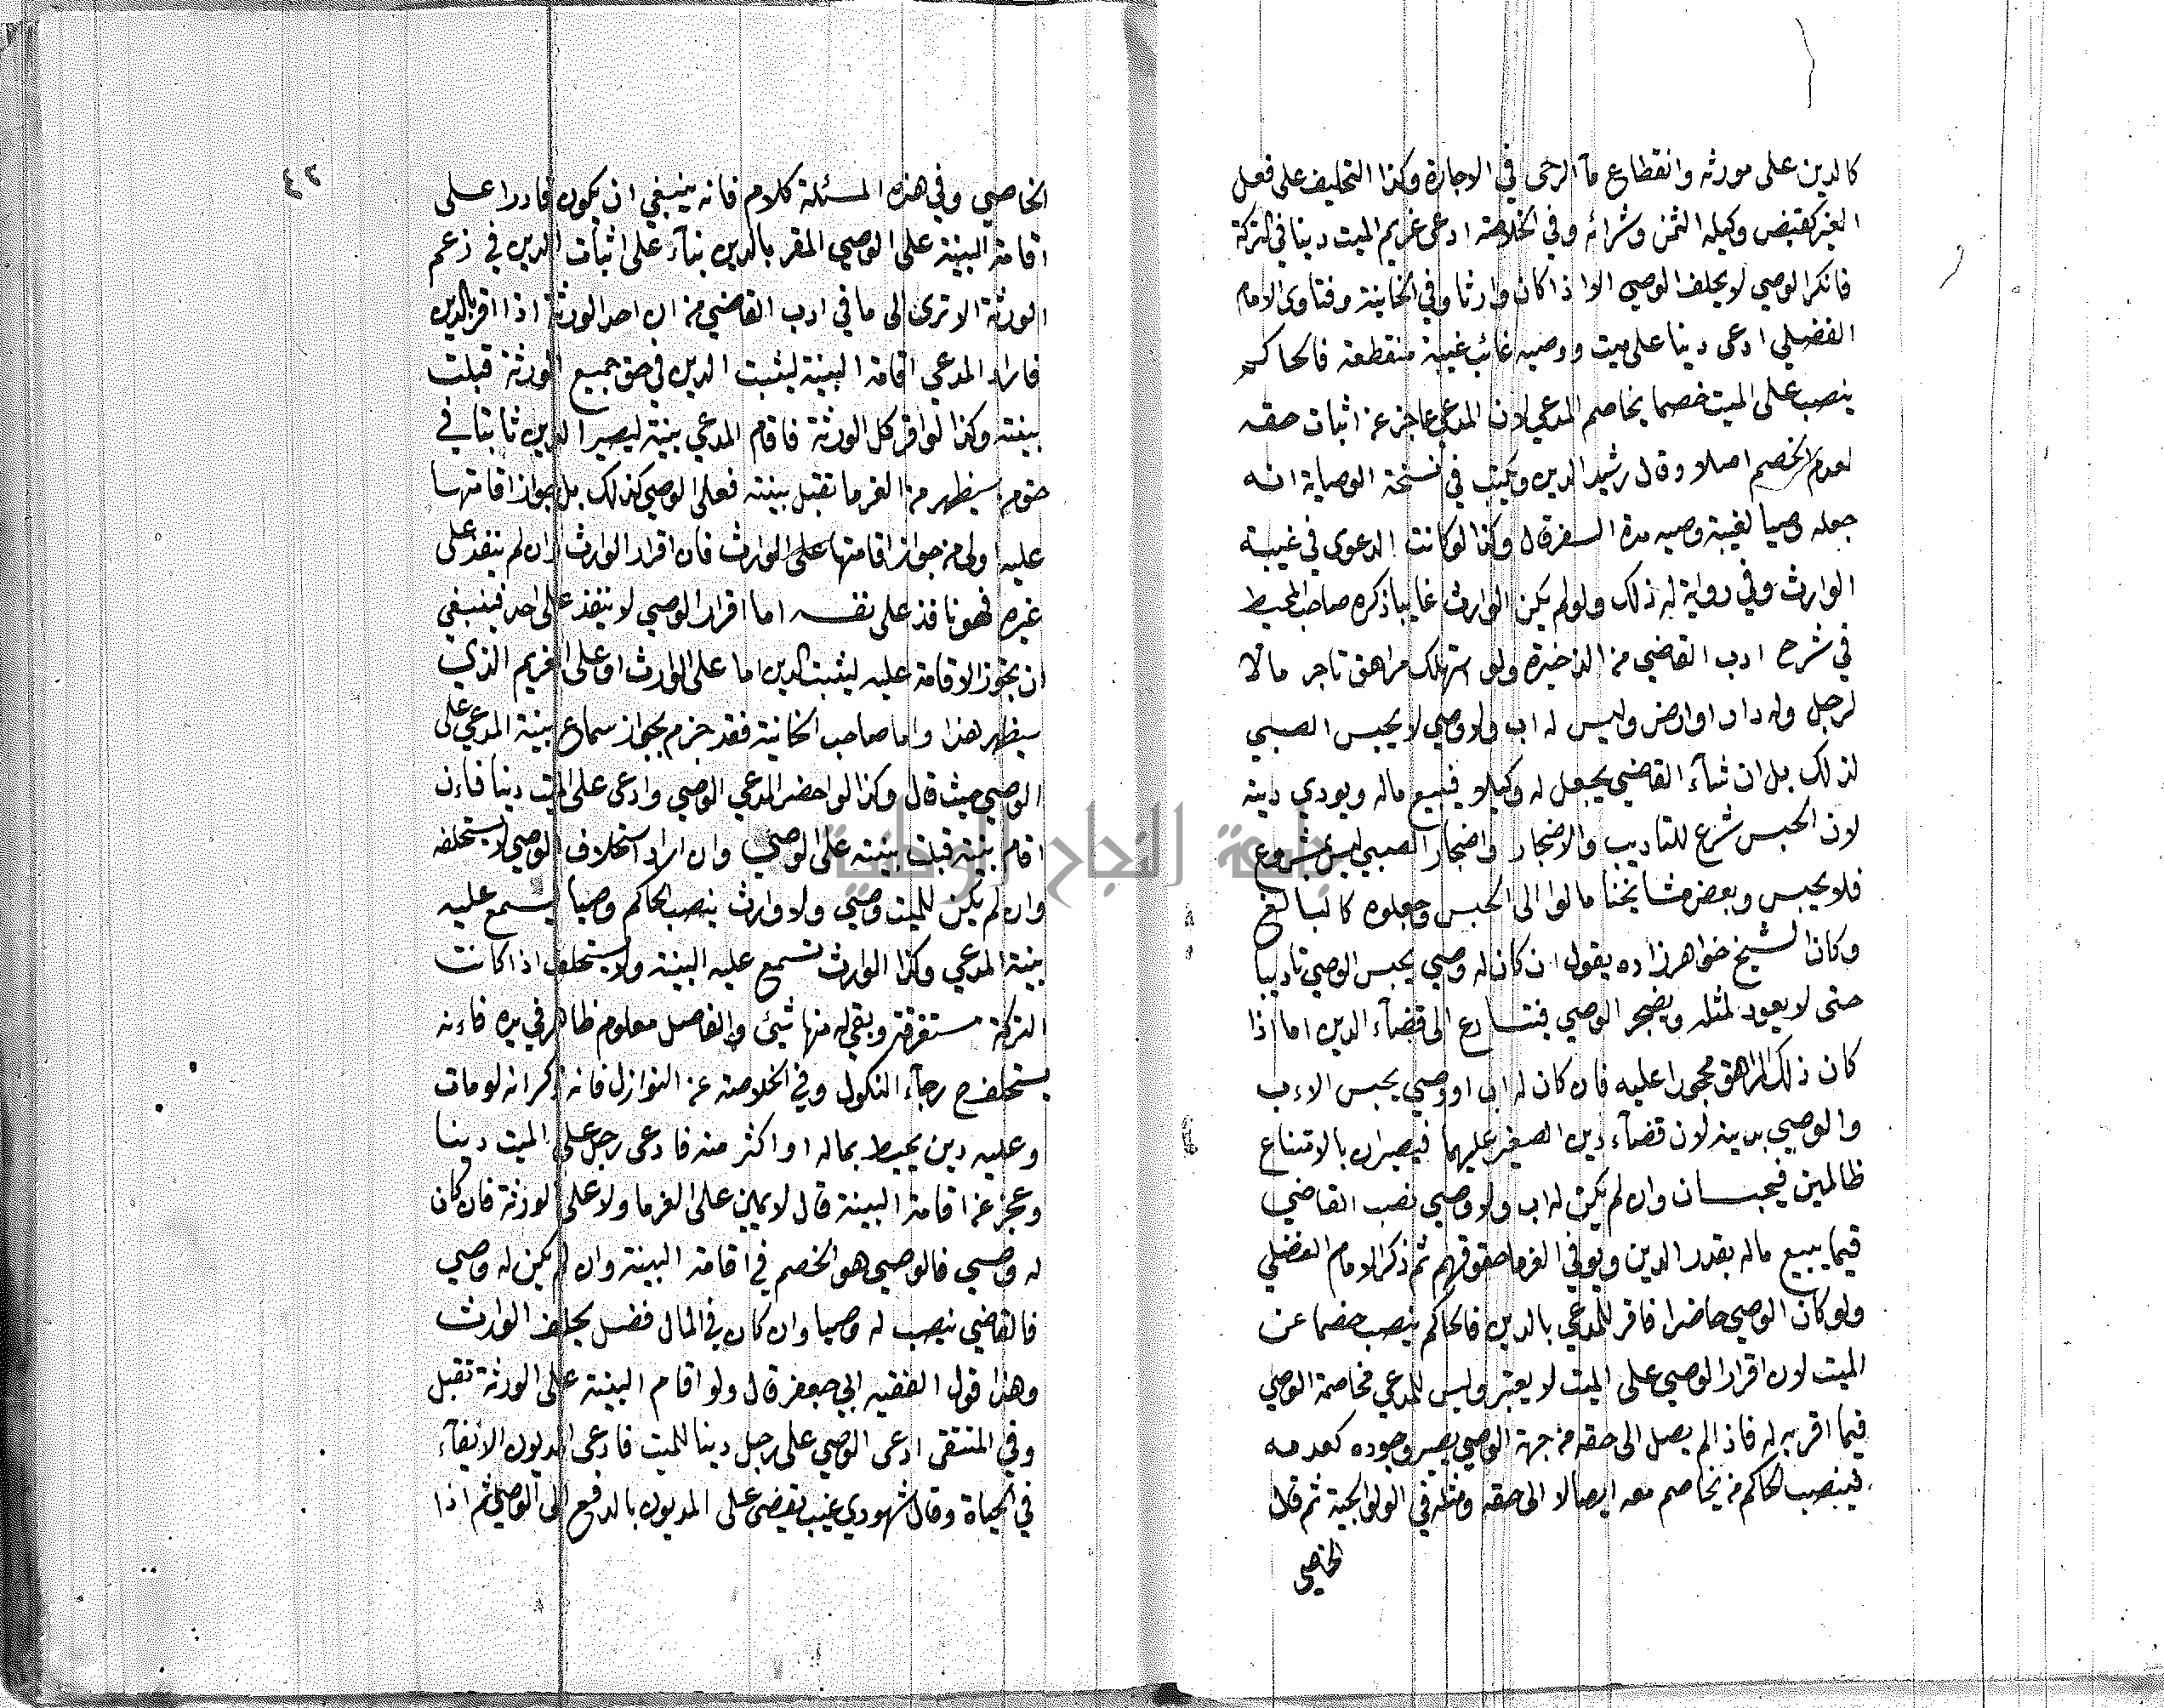 كالدين على مورثه وانقطاع مآ الرحى في الاجارة وكذا التحليف على فعل
الغير كقبض وكيله الثمن وشرائه وفي الخلاصة ادعى غريم الميت دينا في التركة
فانكر الوصي لا يحلف الوصي الا اذا كان وارثا وفي الخانية وفتاوى الامام
الفضلي ادعى دينا على ميت ووصيه غائب غيبة منقطعة فالحاكم
ينصب على الميت خصما يخاصم المدعي لان المدعي عاجز عن اثبات حقه
لعدم الخصم اصلا وقال رشيد الدين ويكتب في نسخة الوصاية انه
جعله وصيا لغيبة وصيه مدة السفر قال وكذا لو كانت الدعوى في غيبة
الوارث وفي رواية له ذلك ولو لم يكن الوارث غايبا ذكره صاحب المحيط
في شرح ادب القاضي من الذخيرة ولو استهلك مراهق تاجر مالا
لرجل وله دار او ارض وليس له اب ولا وصي لا يحبس الصبي
لذلك بل ان شآء القاضي يجعل له وكيلا فيبيع ماله ويودي دينه
لان الحبس شرع للتاديب والاضجار واضجار الصبي ليس بمشروع
فلا يحبس وبعض مشايخنا مالوا الى الحبس وجعلوه كالبالغ
وكان الشيخ خواهر زاده يقول ان كان له وصي يحبس الوصي تاديبا
حتى لا يعود لمثله ويضجر الوصي فيتسارع الى قضآء الدين اما اذا
كان ذلك المراهق محجورا عليه فان كان له اب او وصي يحبس الاب
والوصي بدينه لان قضآء دين الصغير عليهما فيصيران بالامتناع
ظالمين فيحبسان وان لم يكن له اب ولا وصي نصب القاضي
قيما يبيع ماله بقدر الدين ويوفي الغرما حقوقهم ثم ذكر الامام الفضلي
ولو كان الوصي حاضرا فاقر للمدعي بالدين فالحاكم ينصب خصما عن
الميت لان اقرار الوصي على الميت لا يعتبر وليس للمدعي مخاصمة الوصي
فيما اقر به له فاذا لم يصل الى حقه من جهة الوصي يصير وجوده كعدمه
فينصب الحاكم من يخاصم معه ايصالا الى حقه ومثله في الولوالجية ثم قال
الخاصي
٤٢
الخاصي وفي هذه المسئلة كلام فانه ينبغي ان يكون قادرا على
اقامة البينة على الوصي المقر بالدين بنآء على اثبات الدين في زعم
الورثة الا ترى الى ما في ادب القاضي من ان احد الورثة اذا اقر بالدين
فاراد المدعي اقامة البينة ليثبت الدين في حق جميع الورثة قبلت
بينته وكذا لو اقر كل الورثة فاقام المدعي بينة ليصير الدين ثابتا في
حق من سيظهر من الغرما تقبل بينته فعلى الوصي كذلك بل جواز اقامتها
عليه اولى من جواز اقامتها على الوارث فان اقرار الوارث وان لم ينفذ على
غيره فهو نافذ على نفسه اما اقرار الوصي لا ينفذ على احد فينبغي
ان يجوز الاقامة عليه ليثبت الدين اما على الوارث او على الغريم الذي
سيظهر هذا واما صاحب الخانية فقد جزم بجواز سماع بينة المدعي على
الوصي حيث قال وكذا لو احضر المدعي الوصي وادعى على الميت دينا فان
اقام بينة قبلت بينته على الوصي وان اراد استحلاف الوصي لا يستحلفه
وان لم يكن للميت وصي ولا وارث ينصب الحاكم وصيا يسمع عليه
بينة المدعي وكذا الوارث تسمع عليه البينة ولا يستحلف اذا كانت
التركة مستغرقة وبقي له منها شيئ والفاصل معلوم ظاهر في يده فانه
يستحلف ح رجآء النكول وفي الخلاصة عن النوازل فانه ذكر انه لو مات
وعليه دين يحيط بماله او اكثر منه فادعى رجل على الميت دينا
وعجز عن اقامة البينة قال لا يمين على الغرما ولا على الورثة فان كان
له وصي فالوصي هو الخصم في اقامة البينة وان لم يكن له وصي
فالقاضي ينصب له وصيا وان كان في المال فضل يحلف الوارث
وهذا قول الفقيه ابي جعفر قال ولو اقام البينة على الورثة تقبل
وفي المنتقى ادعى الوصي على رجل دينا للميت فادعى المديون الايفآء
في الحياة وقال شهودي غيب يقضى على المديون بالدفع الى الوصي ثم اذا
جامعة النجاح الوطنية